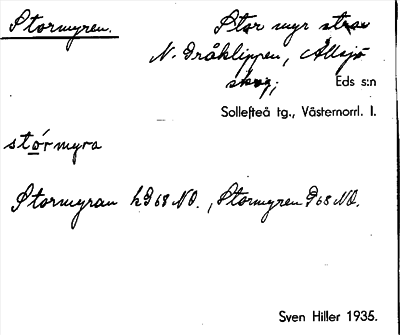 Stormyren.
Stor myr strax
N. Dråklippen, Ållsjö
skog,
Eds s:n
Sollefteå tg., Västernorrl. l.
stórmyra
Stormyran k D 68 NO., Stormyren D 68 NO.
Sven Hiller 1935.